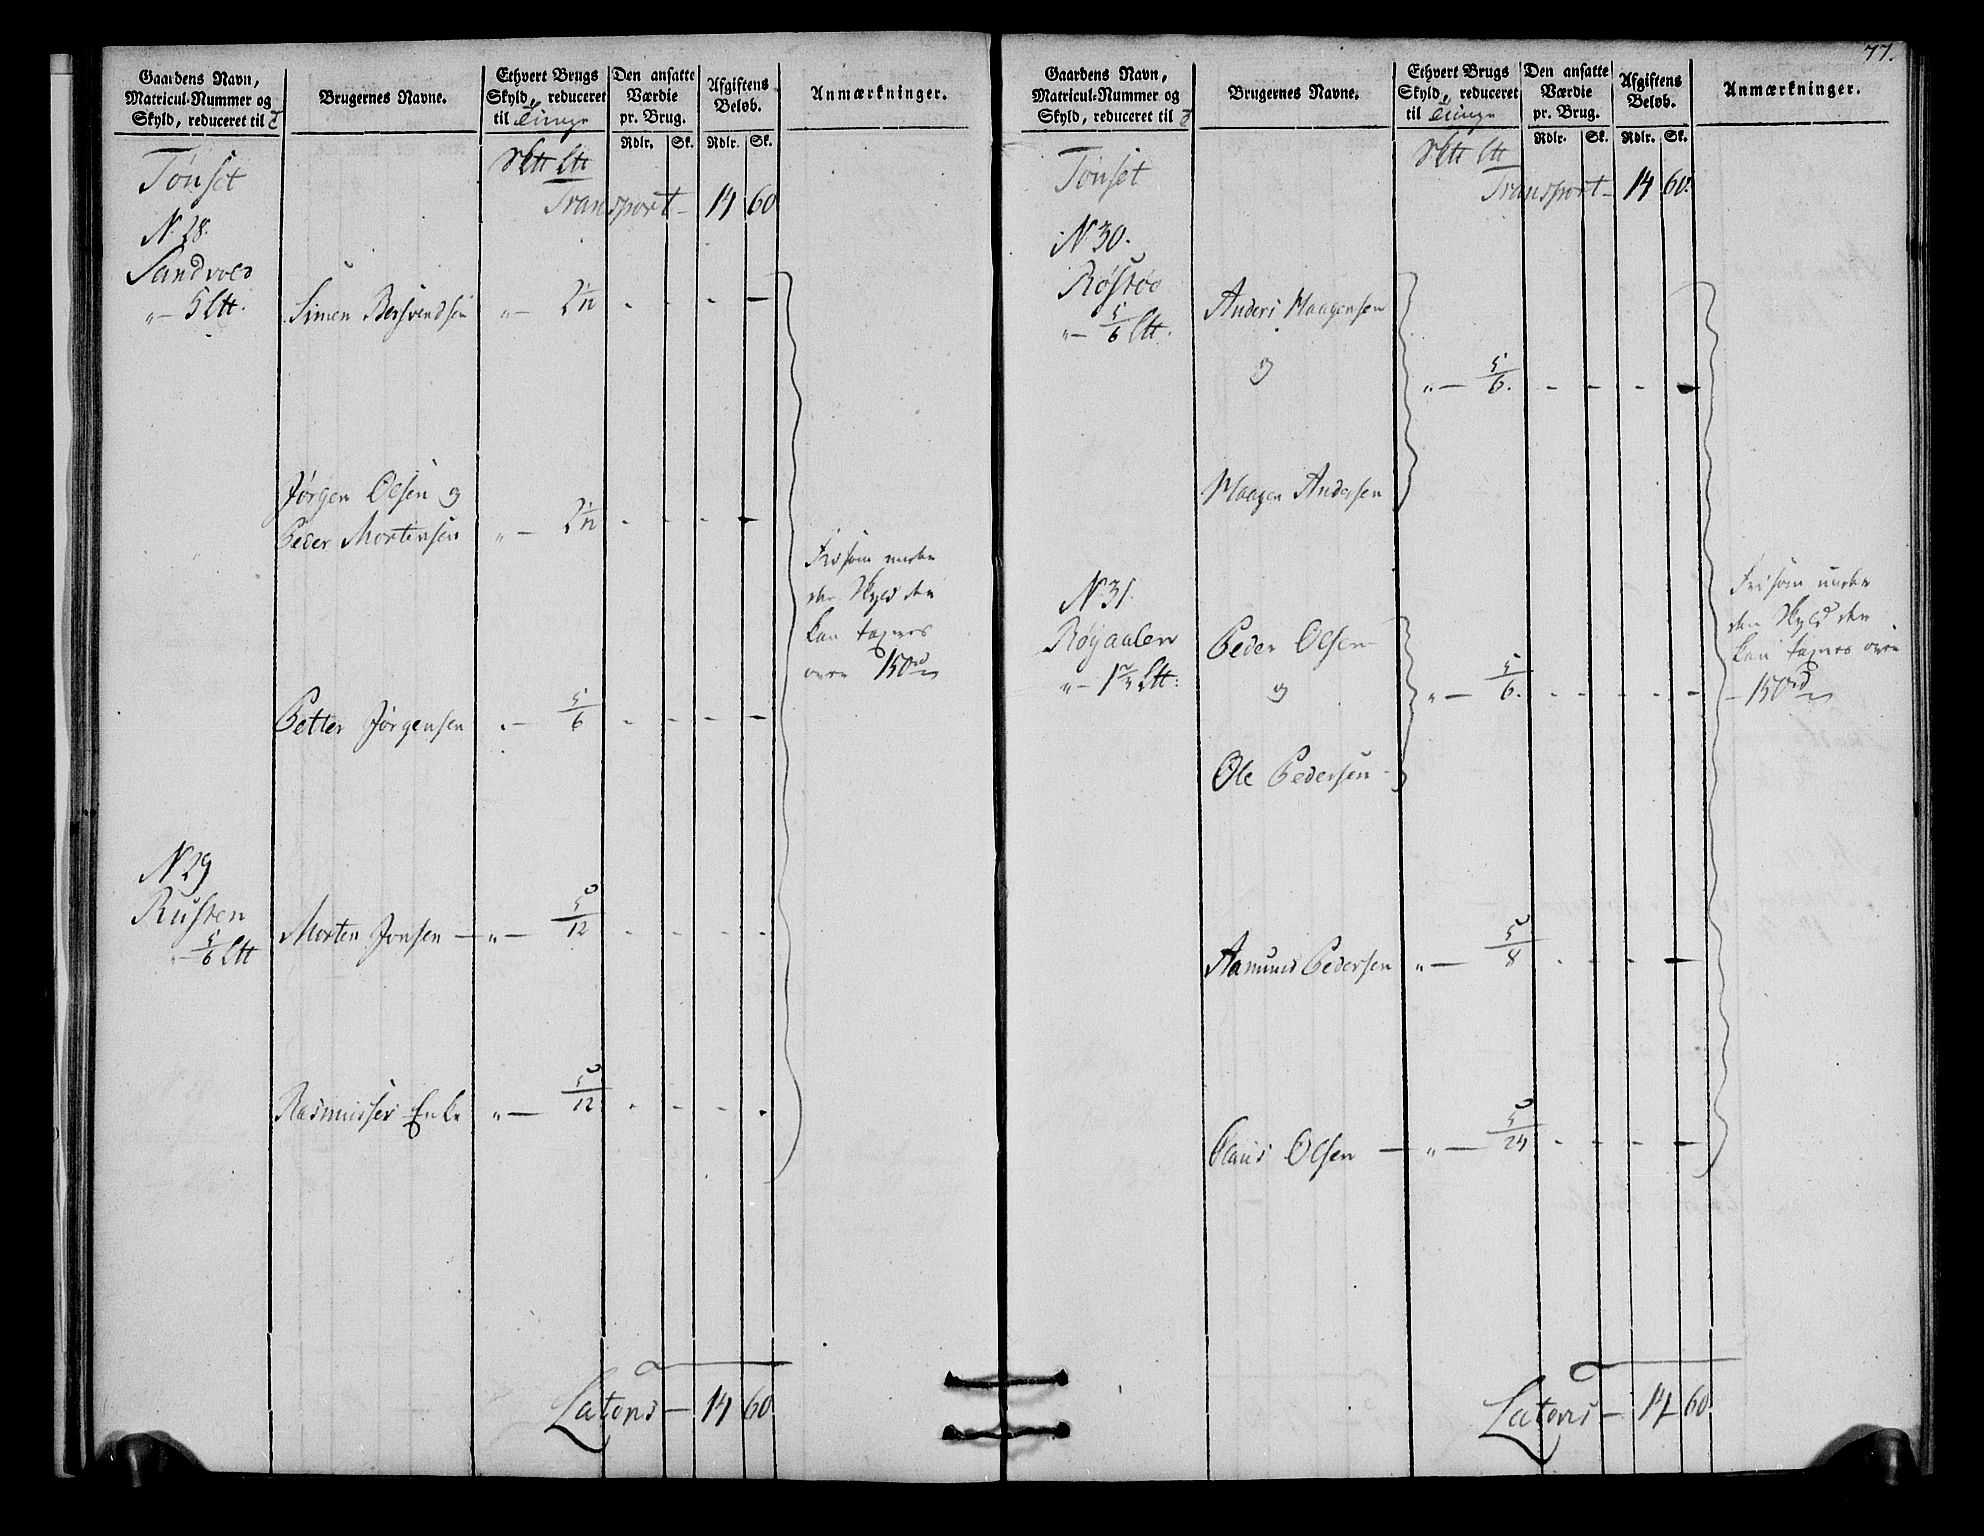 77.
Gaardens Navn,
Matricul-Nummer og
Skyld, reduceret til
Brugernes Navne.
Ethvert Brugs
Skyld, reduceret
til Tunge
Den ansatte
Værdie
pr. Brug.
Afgiftens
Beløb.
Anmærkninger.
Rdlr. Sk. Rdlr. Sk.
Tønset
Transport - 14 60
N. 28.
Sandvold
„ - 5 Ltt.
Simen Bersvendsen „ - 2 1/12 - - - -
Jørgen Olsen og
Peder Mortensen „ - 2 1/12 - - - -
Fri som under
den Skyld der
kan taxeres
over 150 rd
Petter Jørgensen „ - 5/6 - - - -
N 29
Rusten
„ - 5/6 Ltt
Morten Jonsen - „ - 5/12 - - - -
Rasmuses Enke „ - 5/12 - - - -
Lateris - 14 60
Gaardens Navn,
Matricul-Nummer og
Skyld, reduceret til
Brugernes Navne.
Ethvert Brugs
Skyld, reduceret
til Tunge
Den ansatte
Værdie
pr. Brug.
Afgiftens
Beløb.
Anmærkninger.
Rdlr. Sk. Rdlr. Sk.
Tønset
Transport - 14 60.
N 30.
Røstøe
„ - 5/6 Ltt.
Anders Maagensen
og
„ - 5/6. - - - -
Maagen Andersen
N. 31.
Røyaalen
„ - 1 2/3 Ltt:
Peder Olsen
og
„ - 5/6. - - - -
Ole Pedersen -
Fri som under
den Skyld der
kan taxeres over
- 150 rd
Aamund Pedersen „ - 5/8 - - - -
Claus Olsen - „ - 5/24 - - - -
Lateris - 14 60.